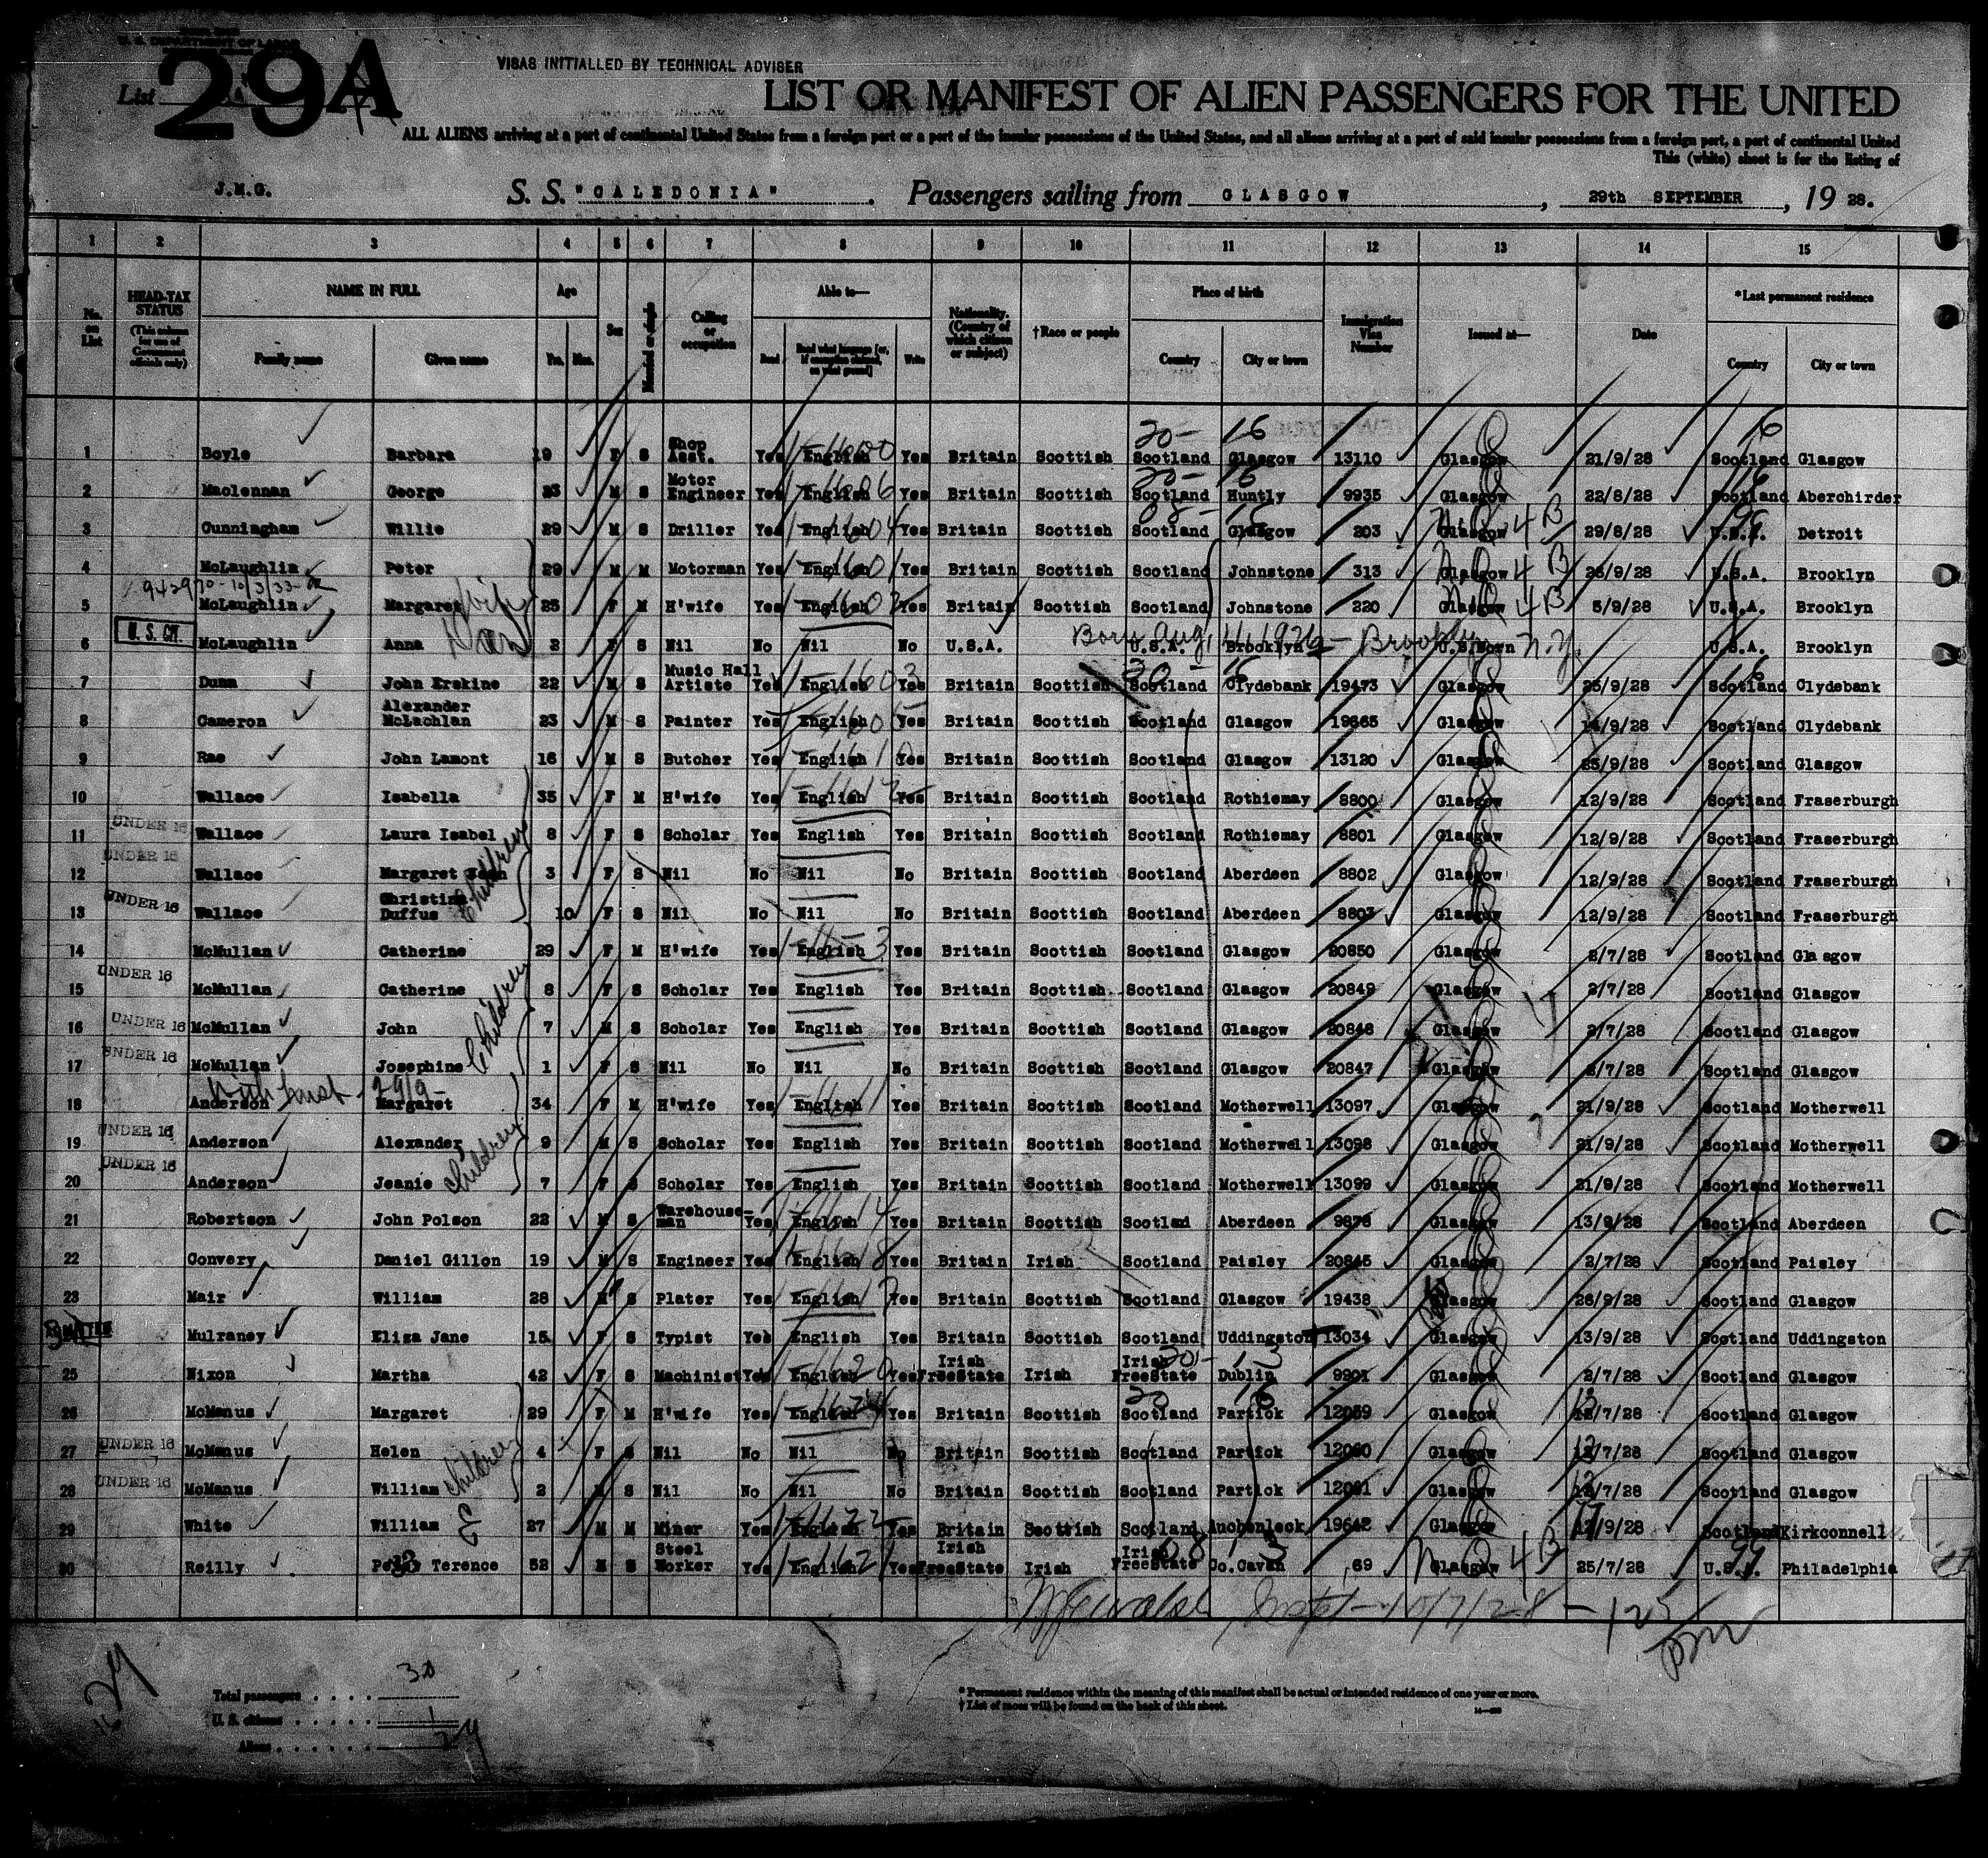 U. S. DEPARTMENT OF LABOR
List 29A
VISAS INITIALLED BY TECHNICAL ADVISER
LIST OR MANIFEST OF ALIEN PASSENGERS FOR THE UNITED
ALL ALIENS arriving at a port of continental United States from a foreign port or a port of the insular possessions of the United States, and all aliens arriving at a port of said insular possessions from a foreign port, a port of continental United
This (white) sheet is for the listing of
J.M.G. S. S. "CALEDONIA" . Passengers sailing from GLASGOW , 29th SEPTEMBER , 19 28.
1 2 3 4 5 6 7 8 9 10 11 12 13 14 15
No. on List
HEAD-TAX STATUS (This column for use of Government officials only)
NAME IN FULL Family name Given name
Age Yrs. Mos.
Sex
Married or single
Calling or occupation
Able to— Read Read what language [or, if exemption claimed, on what ground] Write
Nationality. (Country of which citizen or subject)
†Race or people
Place of birth Country City or town
Immigration Visa Number
Issued at—
Date
*Last permanent residence Country City or town
1 Boyle Barbara 19 F S Shop Asst. Yes English Yes Britain Scottish Scotland Glasgow 13110 Glasgow 21/9/28 Scotland Glasgow
2 Maclennan George 23 M S Motor Engineer Yes English Yes Britain Scottish Scotland Huntly 9935 Glasgow 22/8/28 Scotland Aberchirder
3 Cunningham Willie 29 M S Driller Yes English Yes Britain Scottish Scotland Glasgow 203 Glasgow 4B 29/8/28 U.S.A. Detroit
4 McLaughlin Peter 29 M M Motorman Yes English Yes Britain Scottish Scotland Johnstone 313 Glasgow 4B 26/9/28 U.S.A. Brooklyn
5 McLaughlin Margaret wife 25 F M H'wife Yes English Yes Britain Scottish Scotland Johnstone 220 Glasgow 4B 5/9/28 U.S.A. Brooklyn
U. S. CIT.
6 McLaughlin Anna 2 F S Nil No Nil No U.S.A. U.S.A. Brooklyn U.S.Born U.S.A. Brooklyn
Born Aug, 11, 1926 - Brooklyn N.Y.
7 Dunn John Erskine 22 M S Music Hall Artiste Yes English Yes Britain Scottish Scotland Clydebank 19473 Glasgow 25/9/28 Scotland Clydebank
8 Cameron Alexander McLachlan 23 M S Painter Yes English Yes Britain Scottish Scotland Glasgow 19665 Glasgow 14/9/28 Scotland Clydebank
9 Rae John Lamont 16 M S Butcher Yes English Yes Britain Scottish Scotland Glasgow 13120 Glasgow 25/9/28 Scotland Glasgow
10 Wallace Isabella 35 F M H'wife Yes English Yes Britain Scottish Scotland Rothiemay 8800 Glasgow 12/9/28 Scotland Fraserburgh
11 UNDER 16 Wallace Laura Isabel 8 F S Scholar Yes English Yes Britain Scottish Scotland Rothiemay 8801 Glasgow 12/9/28 Scotland Fraserburgh
12 UNDER 16 Wallace Margaret Jean children 3 F S Nil No Nil No Britain Scottish Scotland Aberdeen 8802 Glasgow 12/9/28 Scotland Fraserburgh
13 UNDER 16 Wallace Christina Duffus 10 F S Nil No Nil No Britain Scottish Scotland Aberdeen 8803 Glasgow 12/9/28 Scotland Fraserburgh
14 McMullan Catherine 29 F M H'wife Yes English Yes Britain Scottish Scotland Glasgow 20850 Glasgow 2/7/28 Scotland Glasgow
15 UNDER 16 McMullan Catherine 8 F S Scholar Yes English Yes Britain Scottish Scotland Glasgow 20849 Glasgow 2/7/28 Scotland Glasgow
16 UNDER 16 McMullan John children 7 M S Scholar Yes English Yes Britain Scottish Scotland Glasgow 20848 Glasgow 2/7/28 Scotland Glasgow
17 UNDER 16 McMullan Josephine 1 F S Nil No Nil No Britain Scottish Scotland Glasgow 20847 Glasgow 2/7/28 Scotland Glasgow
18 Anderson Margaret 34 F M H'wife Yes English Yes Britain Scottish Scotland Motherwell 13097 Glasgow 21/9/28 Scotland Motherwell
19 UNDER 16 Anderson Alexander 9 M S Scholar Yes English Yes Britain Scottish Scotland Motherwell 13098 Glasgow 21/9/28 Scotland Motherwell
20 UNDER 16 Anderson Jeanie children 7 F S Scholar Yes English Yes Britain Scottish Scotland Motherwell 13099 Glasgow 21/9/28 Scotland Motherwell
21 Robertson John Polson 22 M S Warehouse-man Yes English Yes Britain Scottish Scotlad Aberdeen 9878 Glasgow 13/9/28 Scotland Aberdeen
22 Convery Daniel Gillon 19 M S Engineer Yes English Yes Britain Irish Scotland Paisley 20845 Glasgow 2/7/28 Scotland Paisley
23 Mair William 28 M S Plater Yes English Yes Britain Scottish Scotland Glasgow 19438 Glasgow 26/9/28 Scotland Glasgow
Mulraney Eliza Jane 15 F S Typist Yes English Yes Britain Scottish Scotland Uddingston 13034 Glasgow 13/9/28 Scotland Uddingston
25 Nixon Martha 42 F S Machinist Yes English Yes Irish FreeState Irish Irish FreeState Dublin 9901 Glasgow 2/7/28 Scotland Glasgow
26 McManus Margaret 29 F M H'wife Yes English Yes Britain Scottish Scotland Partick 12059 Glasgow 12/7/28 Scotland Glasgow
27 UNDER 16 McManus Helen 4 F S Nil No Nil No Britain Scottish Scotland Partick 12060 Glasgow 12/7/28 Scotland Glasgow
28 UNDER 16 McManus William children 2 M S Nil No Nil No Britain Scottish Scotland Partick 12061 Glasgow 12/7/28 Scotland Glasgow
29 White William 27 M M Miner Yes English Yes Britain Scottish Scotland Auchenleck 19642 Glasgow 17/9/28 Scotland Kirkconnell
30 Reilly Terence 52 M S Steel Worker Yes English Yes Irish FreeState Irish Irish FreeState Co.Cavan 69 Glasgow 4B 25/7/28 U.S.A. Philadelphia
Total passengers . . . . 30
U. S. citizens . . . . . 1
Aliens . . . . . . 29
* Permanent residence within the meaning of this manifest shall be actual or intended residence of one year or more.
† List of races will be found on the back of this sheet.